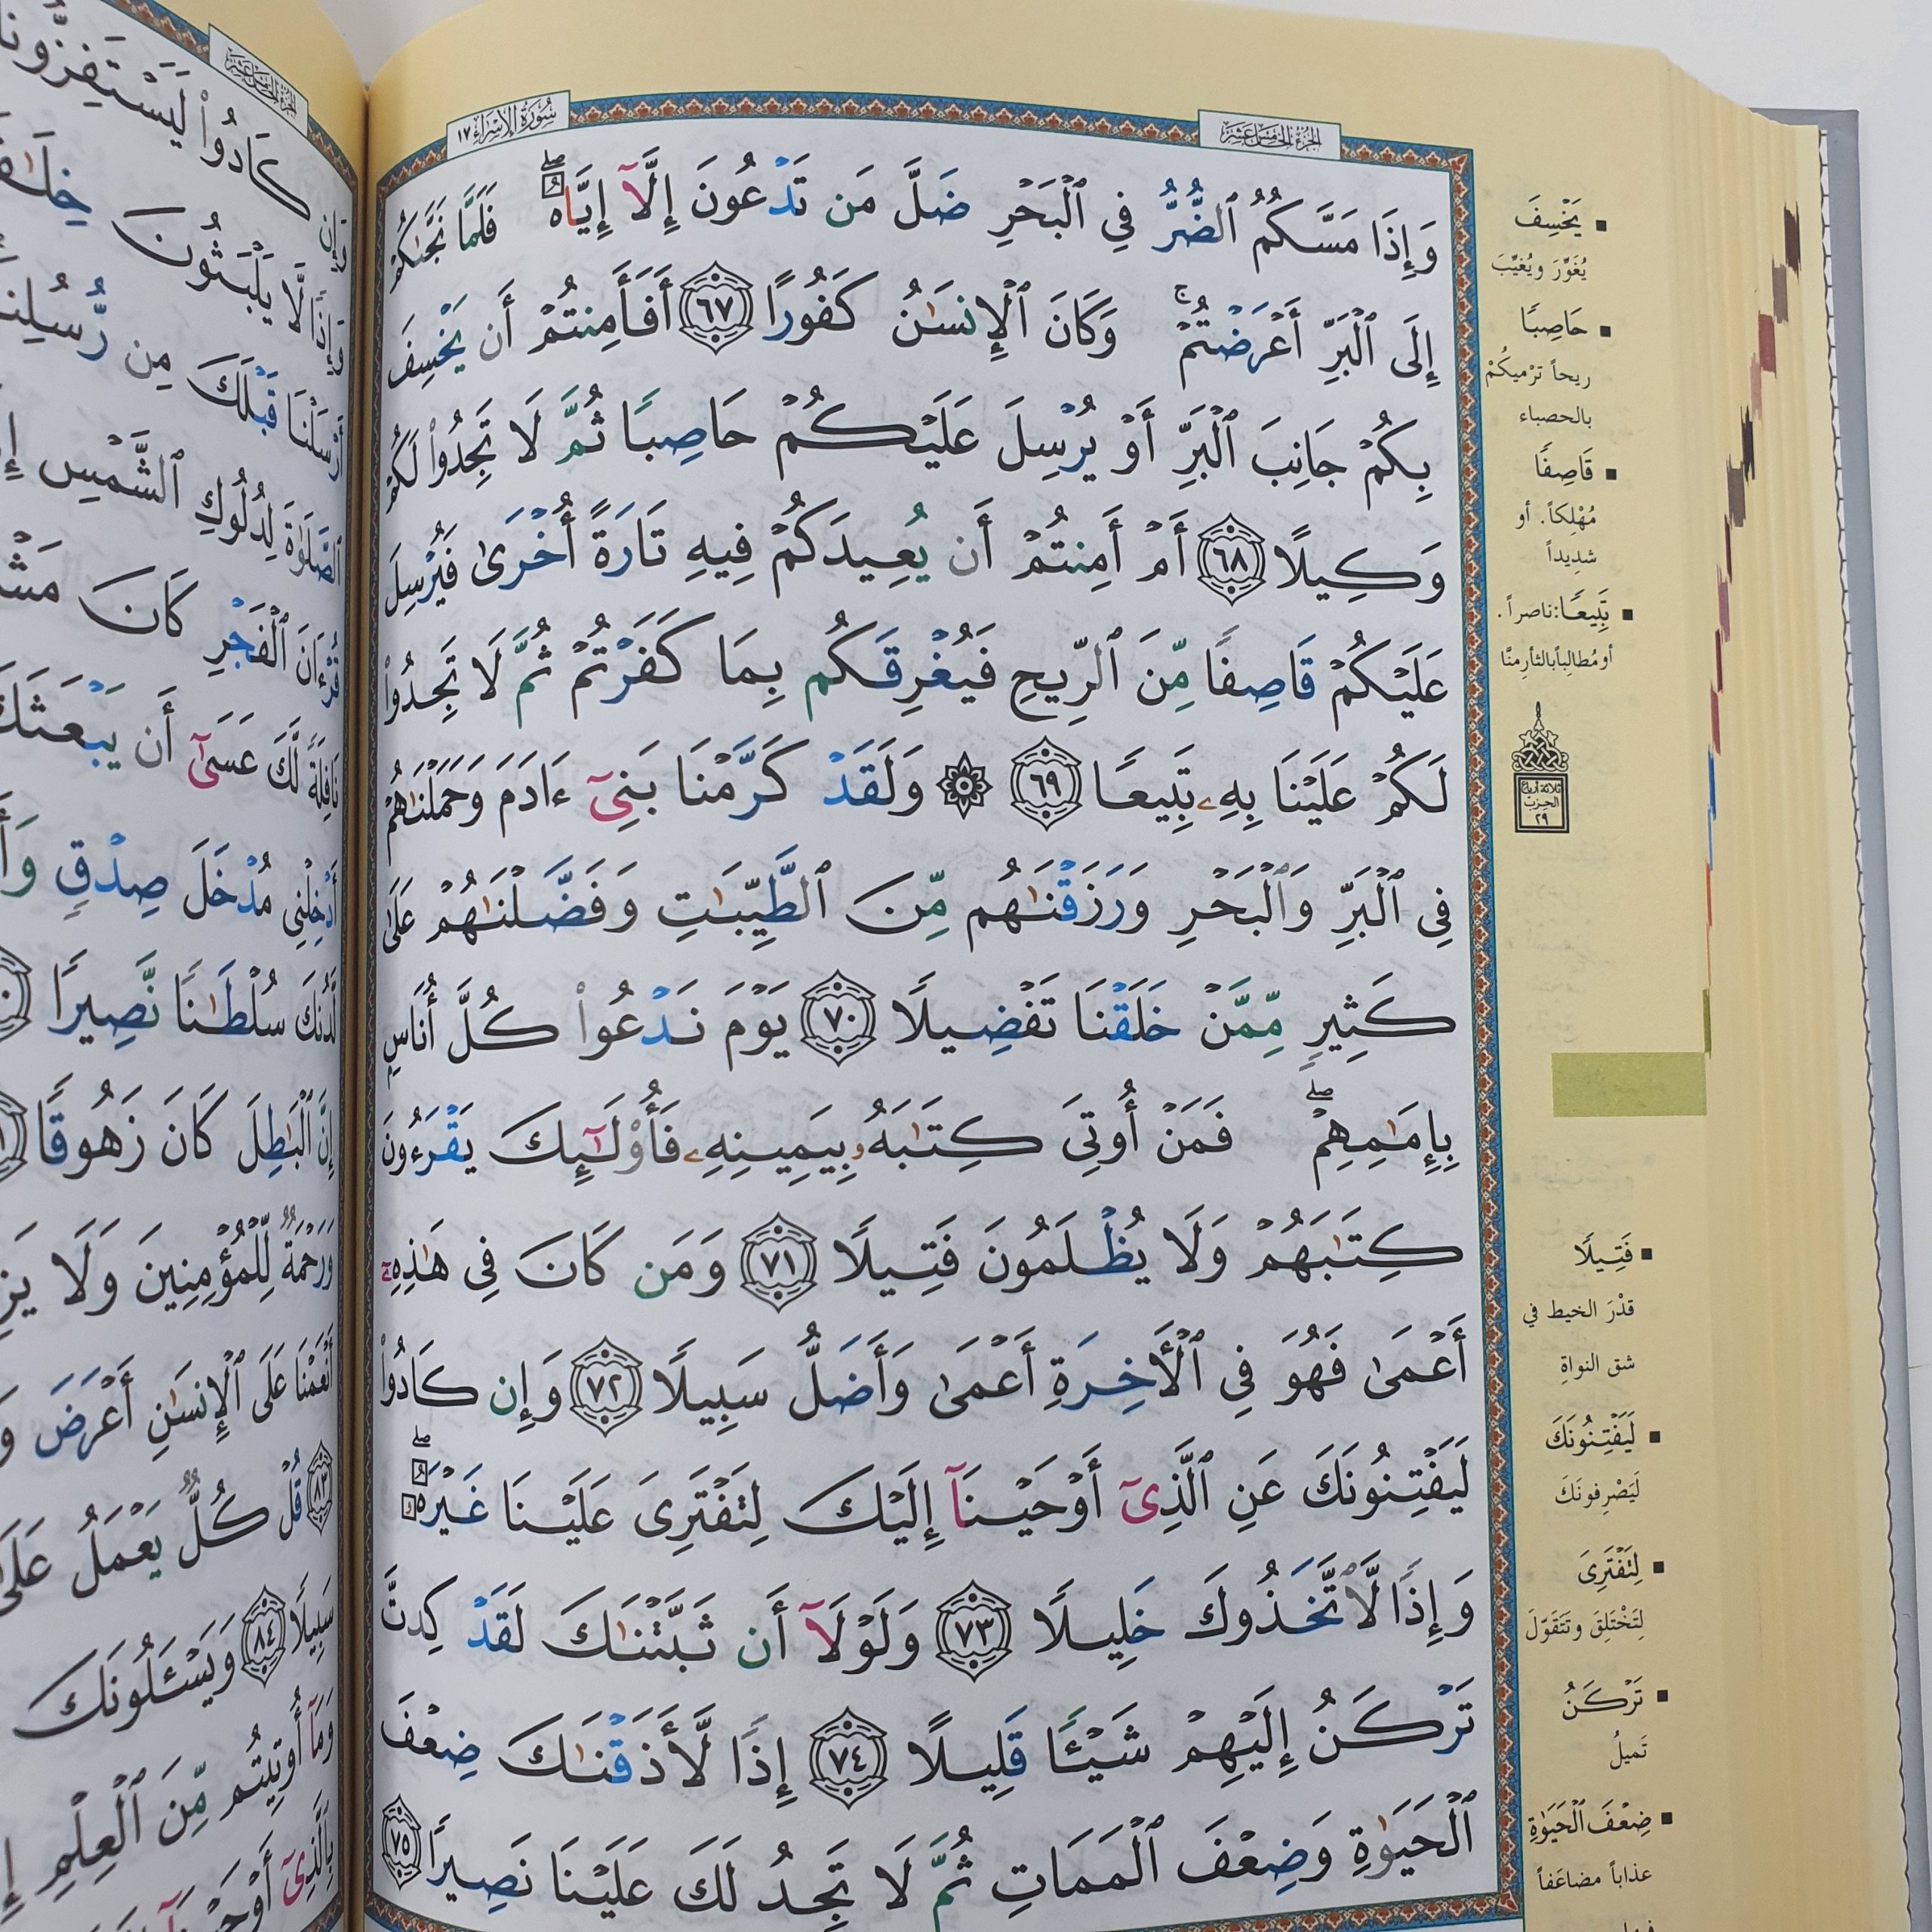 الجزء الخامس عشر
سورة الإسراء ١٧
وَإِذَا مَسَّكُمُ ٱلضُّرُّ فِي ٱلْبَحْرِ ضَلَّ مَن تَدْعُونَ إِلَّآ إِيَّاهُ ۖ فَلَمَّا نَجَّىٰكُمْ
إِلَى ٱلْبَرِّ أَعْرَضْتُمْ ۚ وَكَانَ ٱلْإِنسَٰنُ كَفُورًا ٦٧ أَفَأَمِنتُمْ أَن يَخْسِفَ
بِكُمْ جَانِبَ ٱلْبَرِّ أَوْ يُرْسِلَ عَلَيْكُمْ حَاصِبًا ثُمَّ لَا تَجِدُوا۟ لَكُمْ
وَكِيلًا ٦٨ أَمْ أَمِنتُمْ أَن يُعِيدَكُمْ فِيهِ تَارَةً أُخْرَىٰ فَيُرْسِلَ
عَلَيْكُمْ قَاصِفًا مِّنَ ٱلرِّيحِ فَيُغْرِقَكُم بِمَا كَفَرْتُمْ ثُمَّ لَا تَجِدُوا۟
لَكُمْ عَلَيْنَا بِهِۦ تَبِيعًا ٦٩ ۞ وَلَقَدْ كَرَّمْنَا بَنِىٓ ءَادَمَ وَحَمَلْنَٰهُمْ
فِي ٱلْبَرِّ وَٱلْبَحْرِ وَرَزَقْنَٰهُم مِّنَ ٱلطَّيِّبَٰتِ وَفَضَّلْنَٰهُمْ عَلَىٰ
كَثِيرٍ مِّمَّنْ خَلَقْنَا تَفْضِيلًا ٧٠ يَوْمَ نَدْعُوا۟ كُلَّ أُنَاسٍ
بِإِمَٰمِهِمْ ۖ فَمَنْ أُوتِىَ كِتَٰبَهُۥ بِيَمِينِهِۦ فَأُو۟لَٰٓئِكَ يَقْرَءُونَ
كِتَٰبَهُمْ وَلَا يُظْلَمُونَ فَتِيلًا ٧١ وَمَن كَانَ فِى هَٰذِهِۦٓ
أَعْمَىٰ فَهُوَ فِي ٱلْأَخِرَةِ أَعْمَىٰ وَأَضَلُّ سَبِيلًا ٧٢ وَإِن كَادُوا۟
لَيَفْتِنُونَكَ عَنِ ٱلَّذِىٓ أَوْحَيْنَآ إِلَيْكَ لِتَفْتَرِىَ عَلَيْنَا غَيْرَهُ ۖ
وَإِذًا لَّٱتَّخَذُوكَ خَلِيلًا ٧٣ وَلَوْلَآ أَن ثَبَّتْنَٰكَ لَقَدْ كِدتَّ
تَرْكَنُ إِلَيْهِمْ شَيْـًٔا قَلِيلًا ٧٤ إِذًا لَّأَذَقْنَٰكَ ضِعْفَ
ٱلْحَيَوٰةِ وَضِعْفَ ٱلْمَمَاتِ ثُمَّ لَا تَجِدُ لَكَ عَلَيْنَا نَصِيرًا ٧٥
■ يَخْسِفَ
يُغَوِّرَ ويُغيِّبَ
■ حَاصِبًا
ريحاً ترْميكُمْ
بالحصباء
■ قَاصِفًا
مُهْلِكاً. أو
شديداً
■ تَبِيعًا: ناصراً.
أو مُطالِباً بالثأرِ مِنَّا
ثلاثة أرباع
الحزب
٢٩
■ فَتِيلًا
قدْرَ الخيط في
شق النواةِ
■ لَيَفْتِنُونَكَ
لَيَصْرِفونَكَ
■ لِتَفْتَرِىَ
لِتَخْتَلِقَ وتتَقَوّلَ
■ تَرْكَنُ
تَميلُ
■ ضِعْفَ ٱلْحَيَوٰةِ
عذاباً مضاعَفاً
الجزء الخامس عشر
وَإِن كَادُوا۟ لَيَسْتَفِزُّونَ
وَإِذًا لَّا يَلْبَثُونَ
أَرْسَلْنَا قَبْلَكَ مِن رُّسُلِنَا
ٱلصَّلَوٰةَ لِدُلُوكِ ٱلشَّمْسِ
قُرْءَانَ ٱلْفَجْرِ كَانَ
نَافِلَةً لَّكَ عَسَىٰٓ أَن يَبْعَثَكَ
أَدْخِلْنِى مُدْخَلَ صِدْقٍ
لَّدُنكَ سُلْطَٰنًا نَّصِيرًا
إِنَّ ٱلْبَٰطِلَ كَانَ زَهُوقًا
وَرَحْمَةٌ لِّلْمُؤْمِنِينَ وَلَا
أَنْعَمْنَا عَلَى ٱلْإِنسَٰنِ أَعْرَضَ
٨٣ قُلْ كُلٌّ يَعْمَلُ عَلَىٰ
سَبِيلًا ٨٤ وَيَسْـَٔلُونَكَ
وَمَآ أُوتِيتُم مِّنَ ٱلْعِلْمِ
بِٱلَّذِىٓ